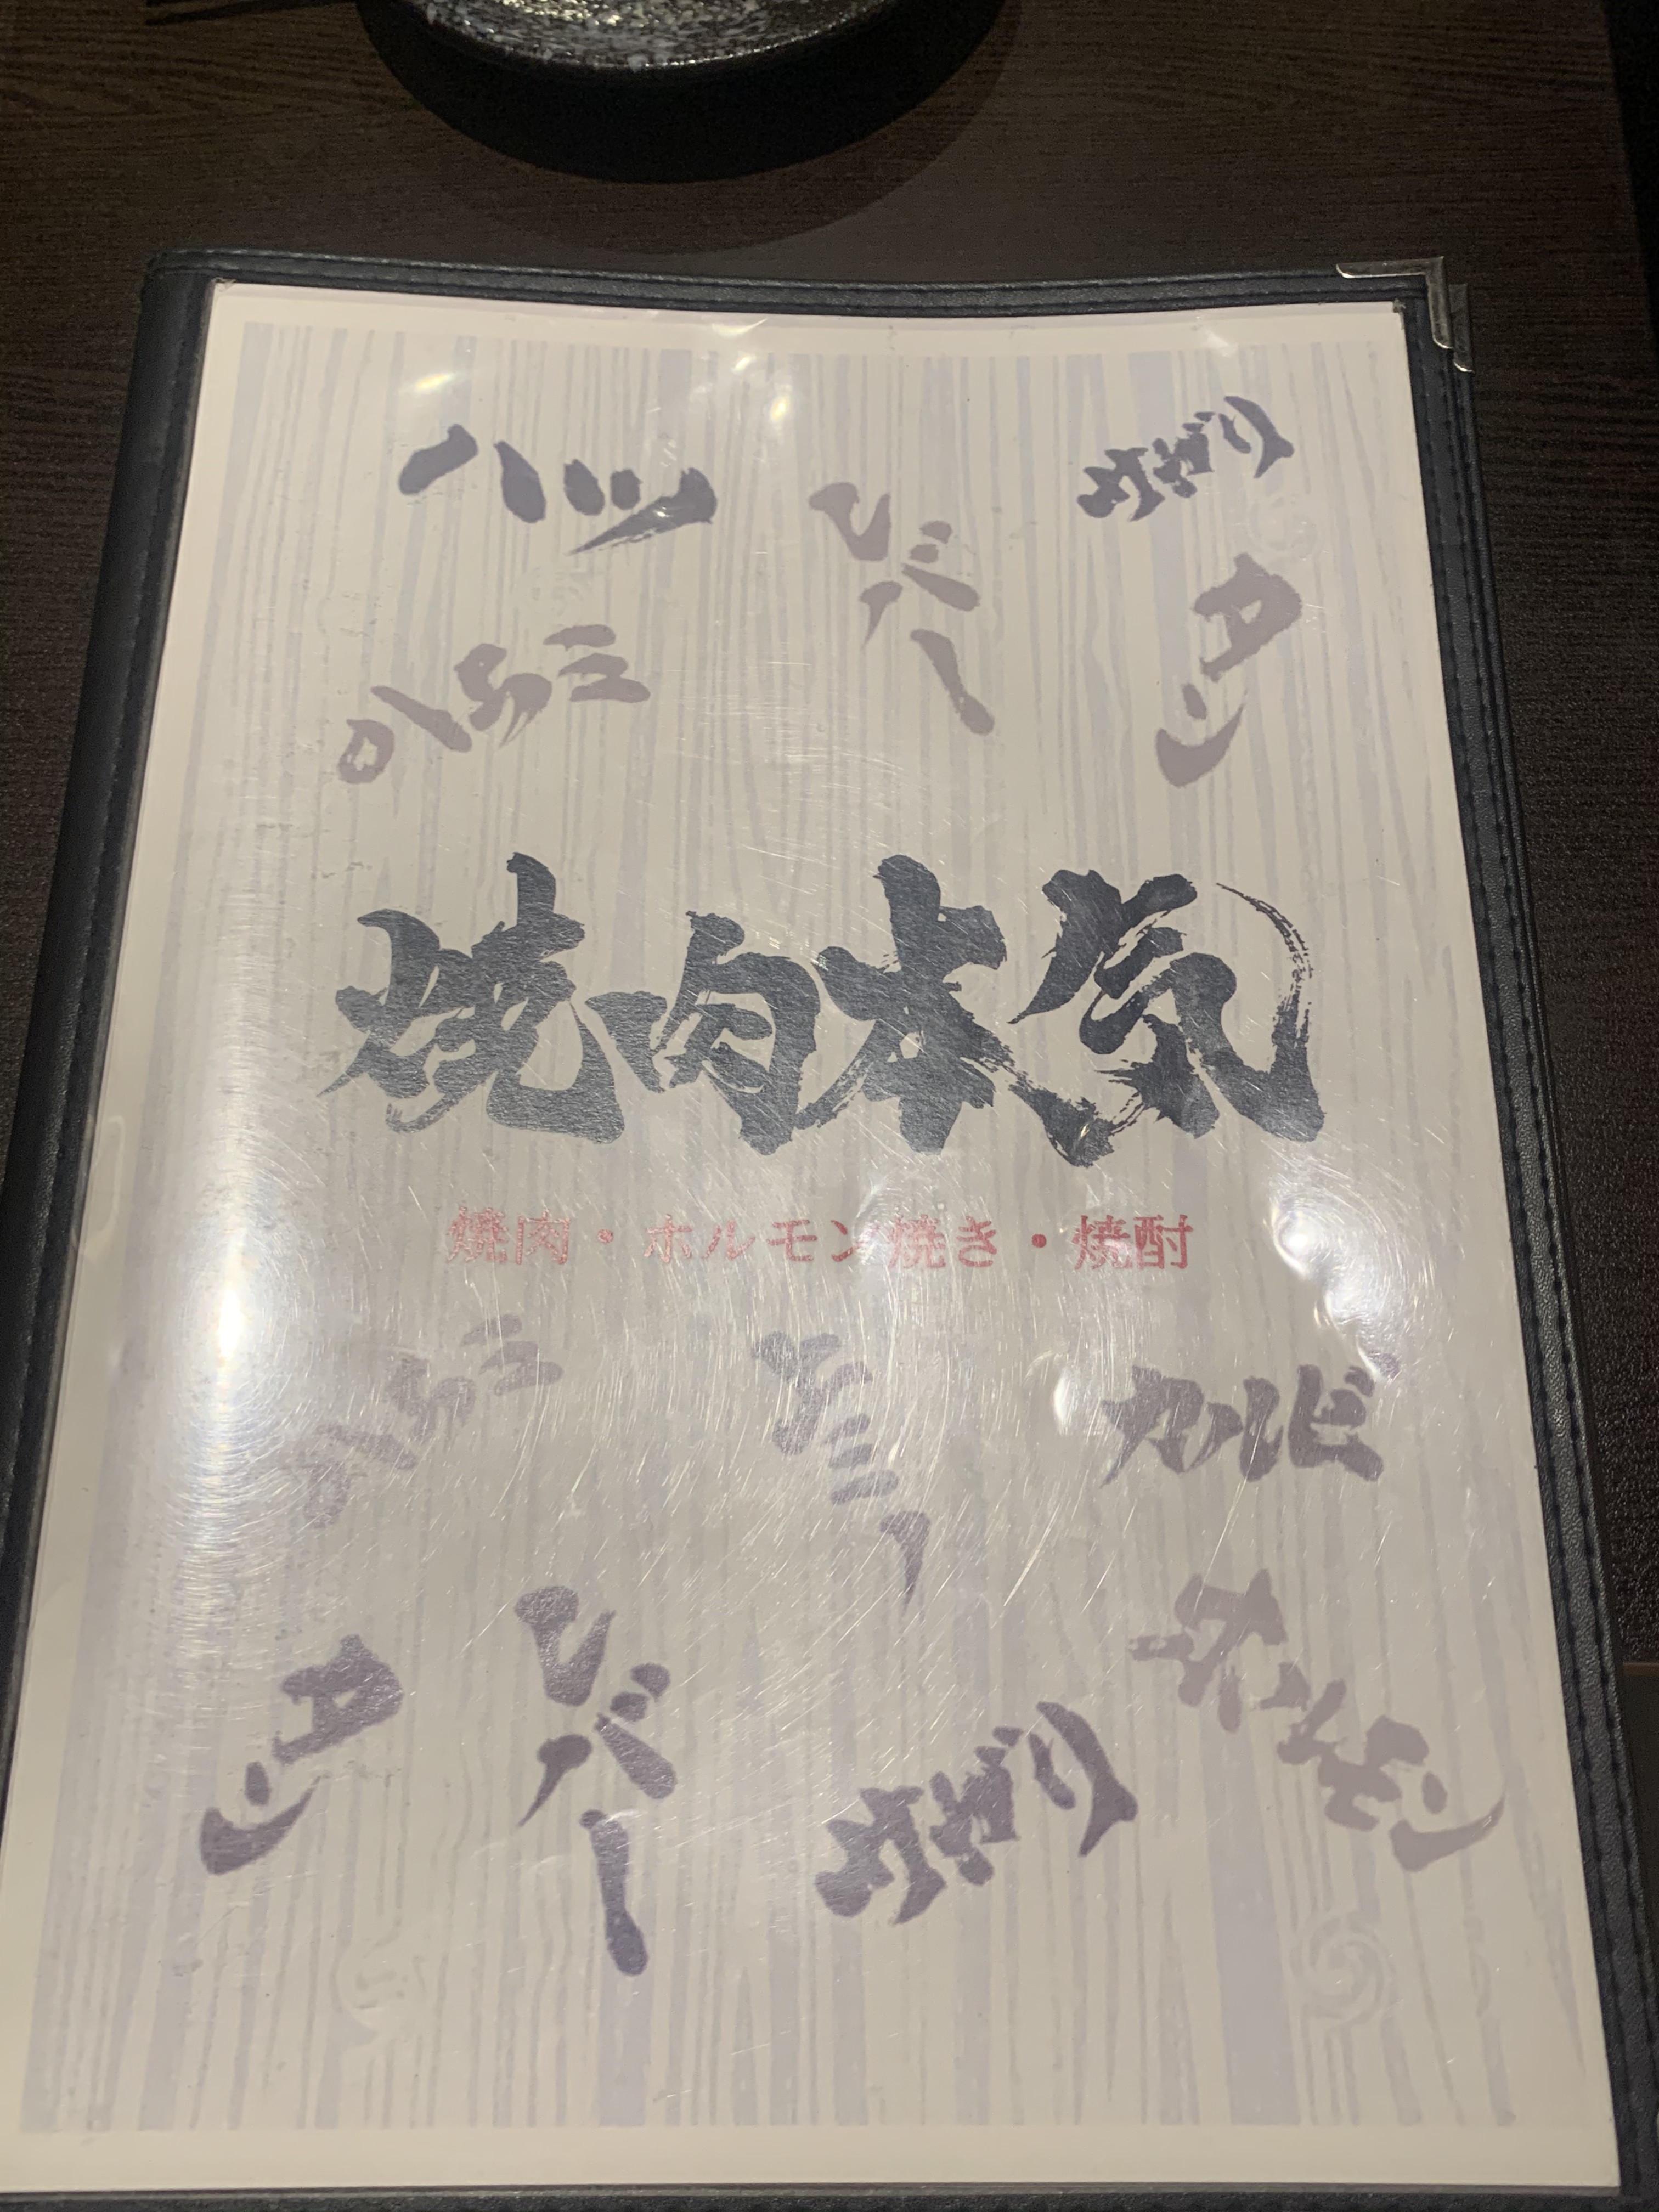 ハツ
レバー
サガリ
ハラミ
タン
焼肉本気
焼肉・ホルモン焼き・焼酎
ハラミ
カルビ
タン
レバー
サガリ
ホルモン